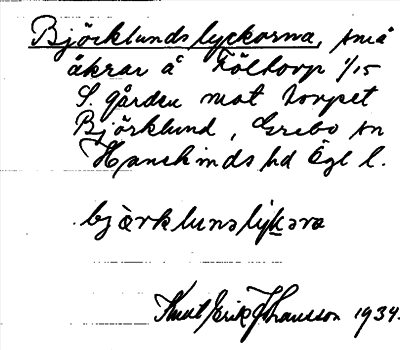 Björklundslyckorna, små
åkrar å Föltorp 1/15
S. gården mot torpet
Björklund, Grebo sn
Hanekinds hd Ögl l.
bjärklunəlykəra
Knut Erik Johansson 1934.